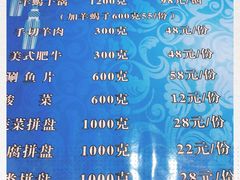 羊蝎子锅 1200克 98元/锅
(加羊蝎子600克55/份)
手切羊肉 300克 48元/份
美式肥牛 300克 48元/份
涮鱼片 600克 58元/份
酸菜 600克 12元/份
菜拼盘 1000克 28元/份
腐拼盘 1000克 22元/份
类拼盘 1000克 28元/份